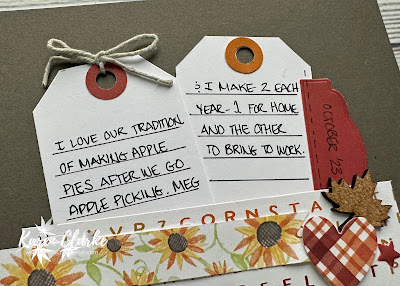 I LOVE OUR TRADITION
OF MAKING APPLE
PIES AFTER WE GO
APPLE PICKING. MEG
& I MAKE 2 EACH
YEAR - 1 FOR HOME
AND THE OTHER
TO BRING TO WORK.
OCTOBER '23
CORNSTA
Karen Clarke